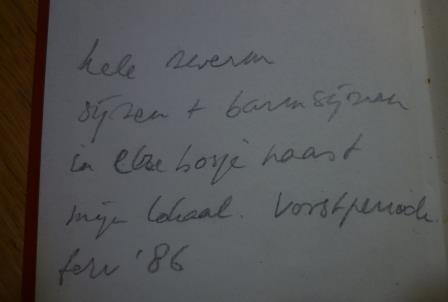 hele zwerm
sijzen + barmsijzen
in elzebosje naast
mijn lokaal. Vorstperiode
febr '86